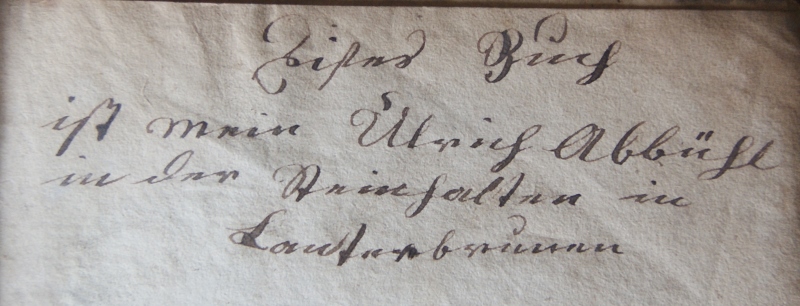 Dises Buch
ist mein Ulrich Abbühl
in der Steinhalten in
Lauterbrunen